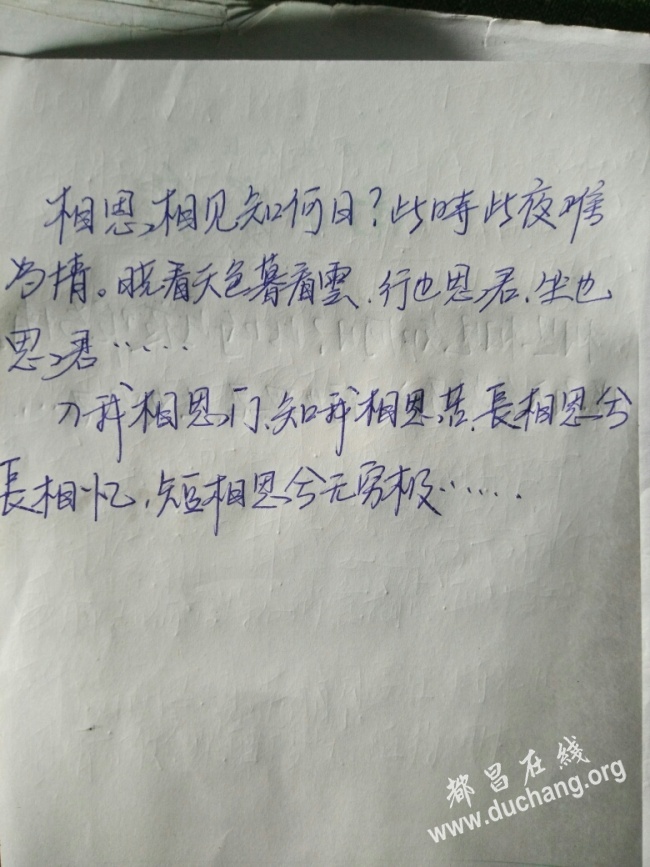 相思相见知何日?此時此夜难
为情。晓看天色暮看雲,行也思君,坐也
思君……
入我相思门,知我相思苦,長相思兮
長相忆,短相思兮无穷极……
都昌在线
www.duchang.org